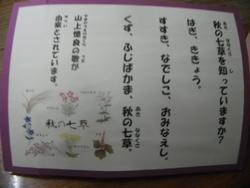 秋の七草を知っていますか？
はぎ、ききょう、
すすき、なでしこ、おみなえし、
くず、ふじばかま、秋の七草
山上憶良の歌が
由来とされています。
秋の七草